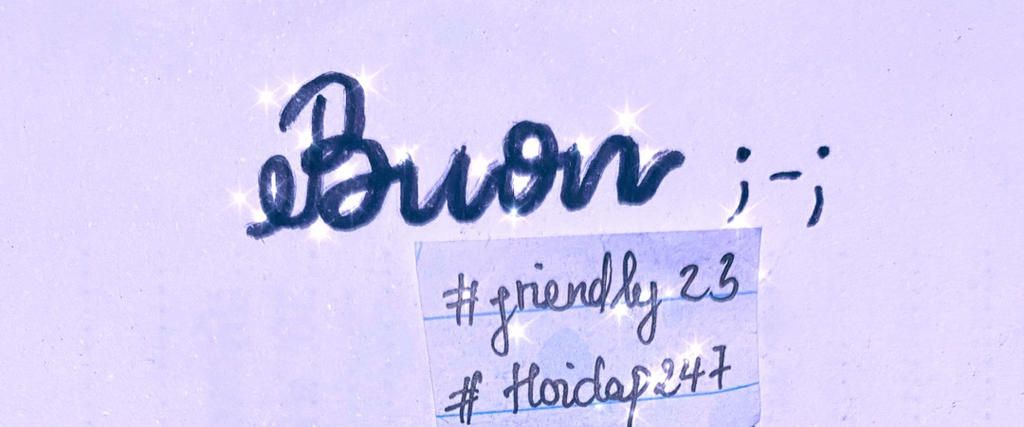 Buon ;-;
#friendly 23
# Hoidap247